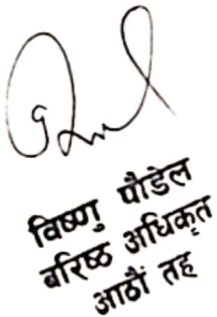 विष्णु पौडेल
बरिष्ठ अधिकृत
आठौं तह